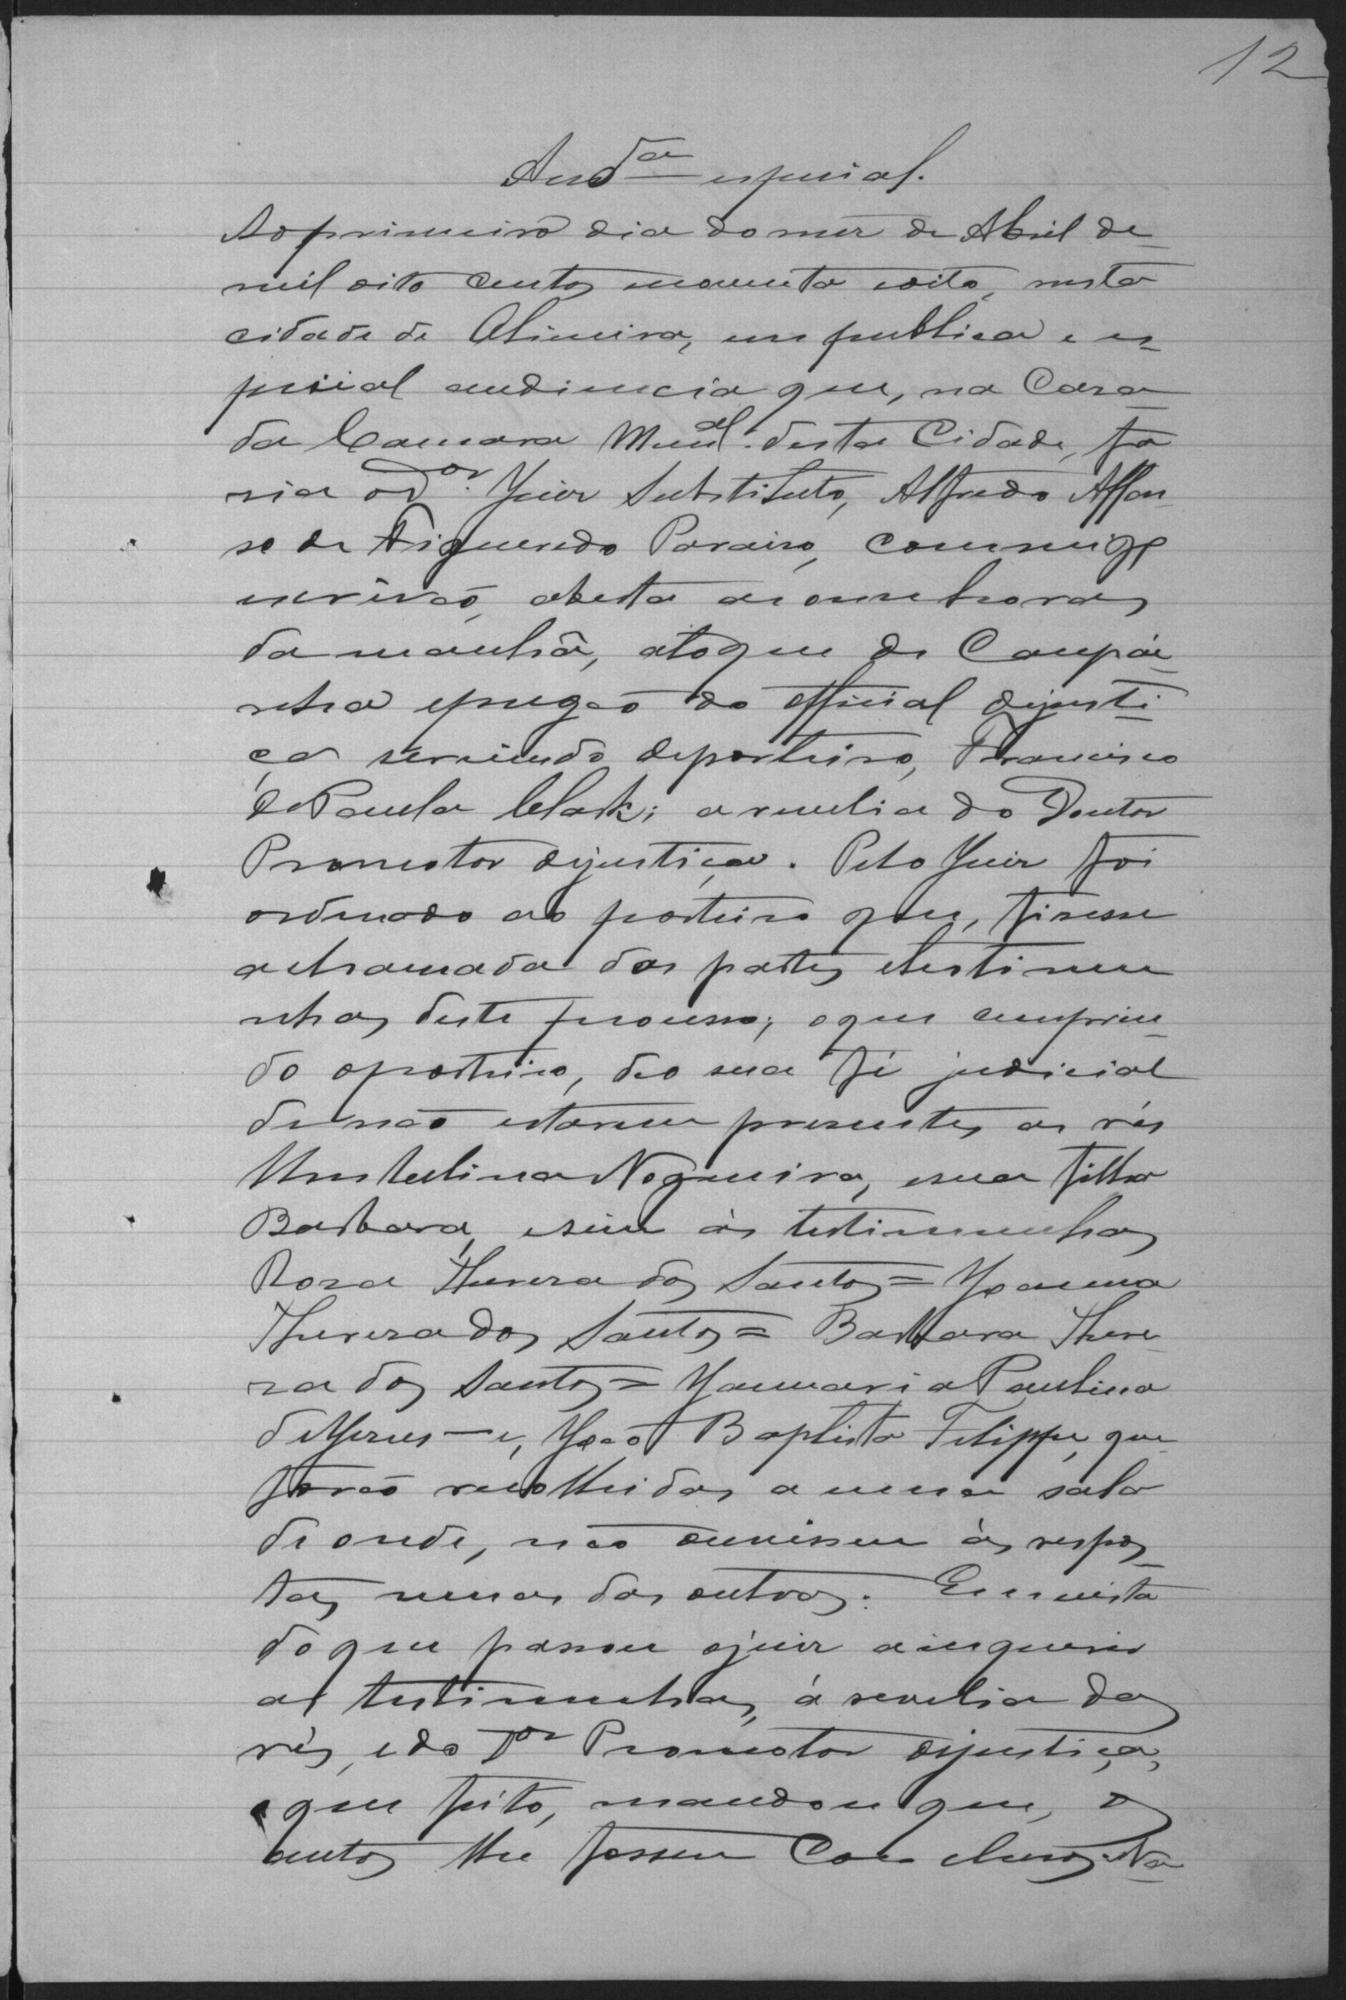 12
Aud.ª especial.
Ao primeiro dia do mez de Abril de
mil oito centos noventa e oito, nesta
cidade de Olimeira, em publica e es-
pecial audiencia que, na Casa
da Camara Mun.al desta Cidade, fa-
sia o D.or Juiz Substituto, Alfredo Affon-
so de Figueredo Paraiso, commigo
escrivão, aberta as onse horas
da manhã, a toque de Campai-
nha e pregão do official dejusti-
ça servindo deporteiro, Francisco
de Paula Clark; a revelia do Doutor
Promotor dejustiça. Pelo Juiz foi
ordenado ao porteiro que, fisesse
a chamada das partes etestimu-
nhas deste processo; o que cumprin-
do oporteiro, deo sua fé judicial
de não estarem presentes as rés
Umbulina Nogueira, esua filha
Barbara, esim ás testimunhas
Rosa Thereza dos Santos = Joanna
Thereza dos Santos = Barbara There-
za dos Santos = Januaria Paulina
de Jesus — e, João Baptista Felippe, que
forão recolhidas a uma sala
de onde, não ouvissem ás respos-
tas umas das outras. Em vista
do que passou ojuiz a inquerir
as testimunhas, á revelia das
rés, e do D.or Promotor dejustiça,
e que feito, mandou que, os
autos lhe fossem Conclusos. Na-